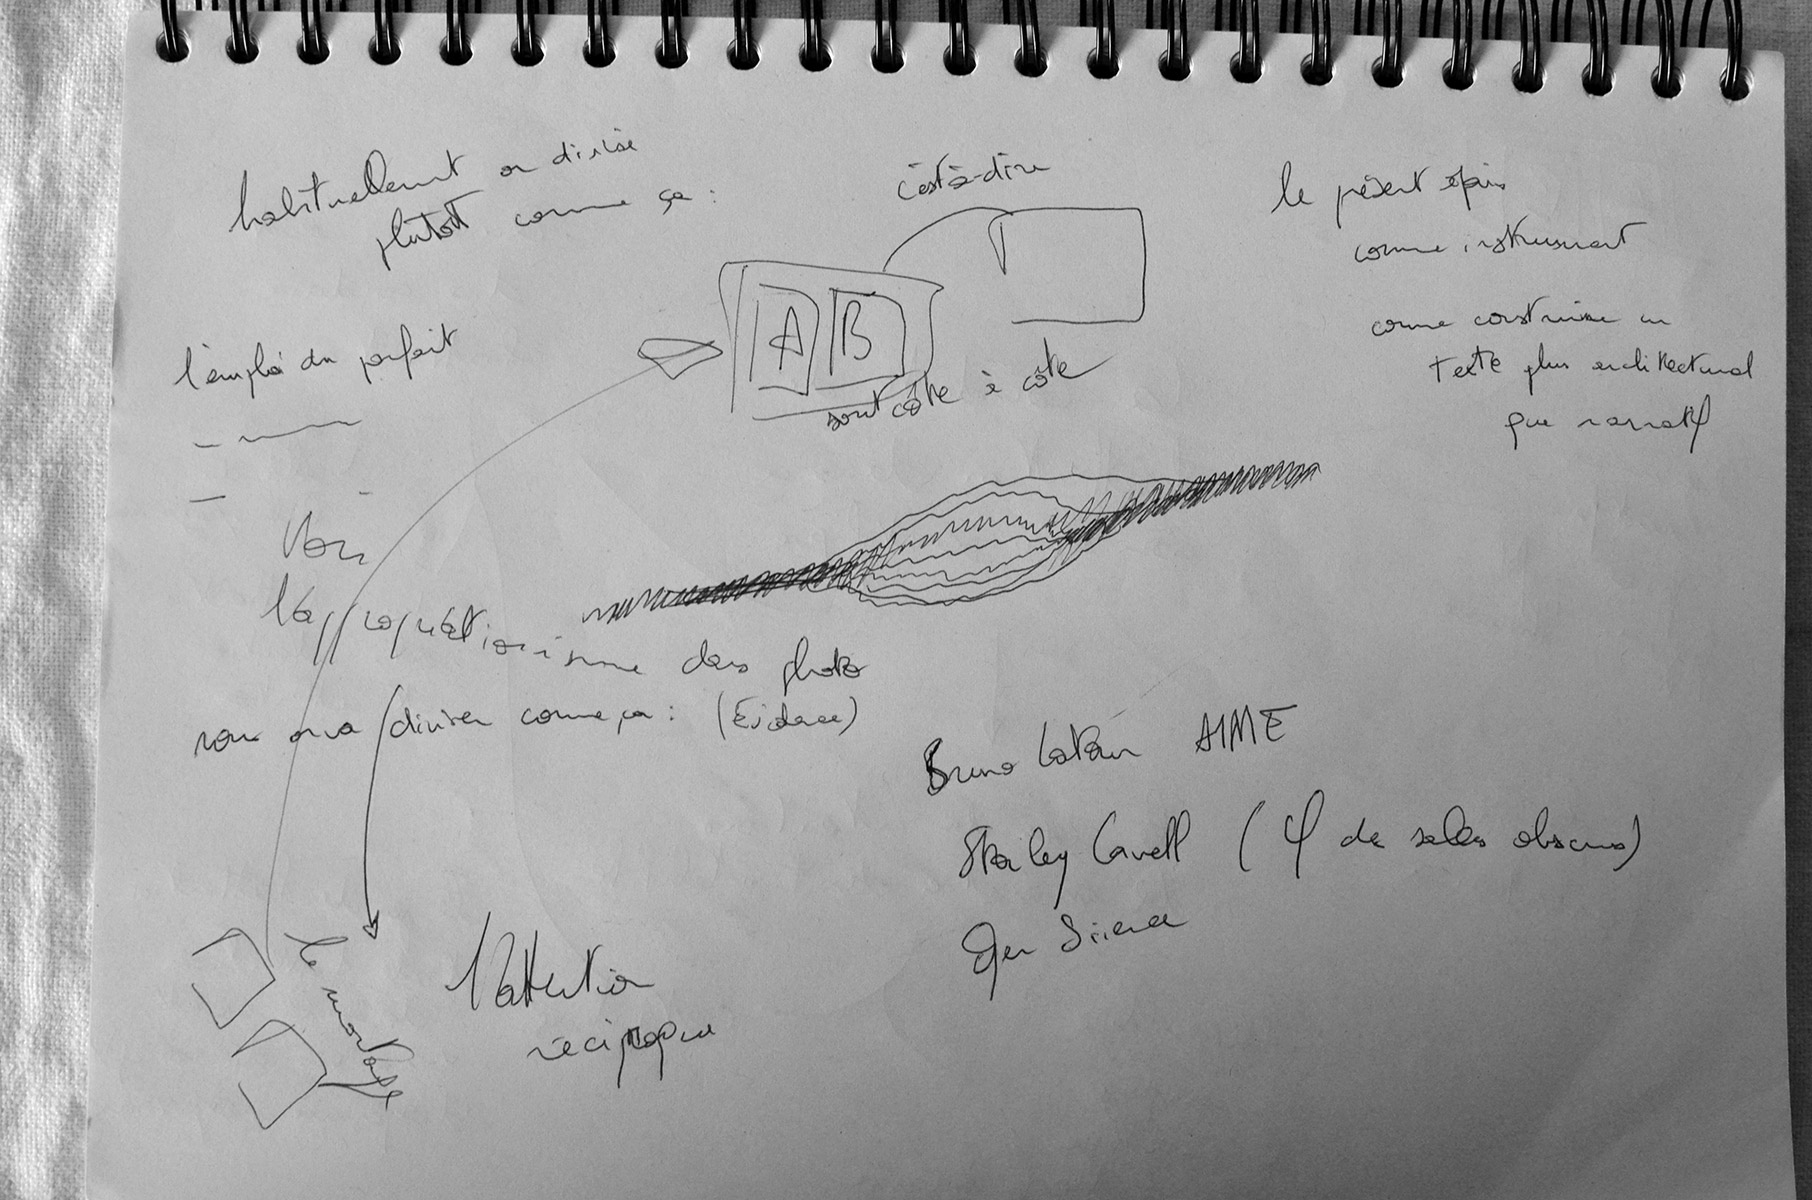 habituellement on divise
plutôt comme ça :
c'est-à-dire
A B
sont côte à côte
le présent épais
comme instrument
comme construire un
texte plus architectural
que narratif
l'emploi du parfait
Voir
l'appropriationnisme dans photo
nous on va diviser comme ça : (Évidence)
Bruno Latour AIME
Stanley Cavell ( φ de salles obscures)
Open Science
le montage
l'attention
réciproque